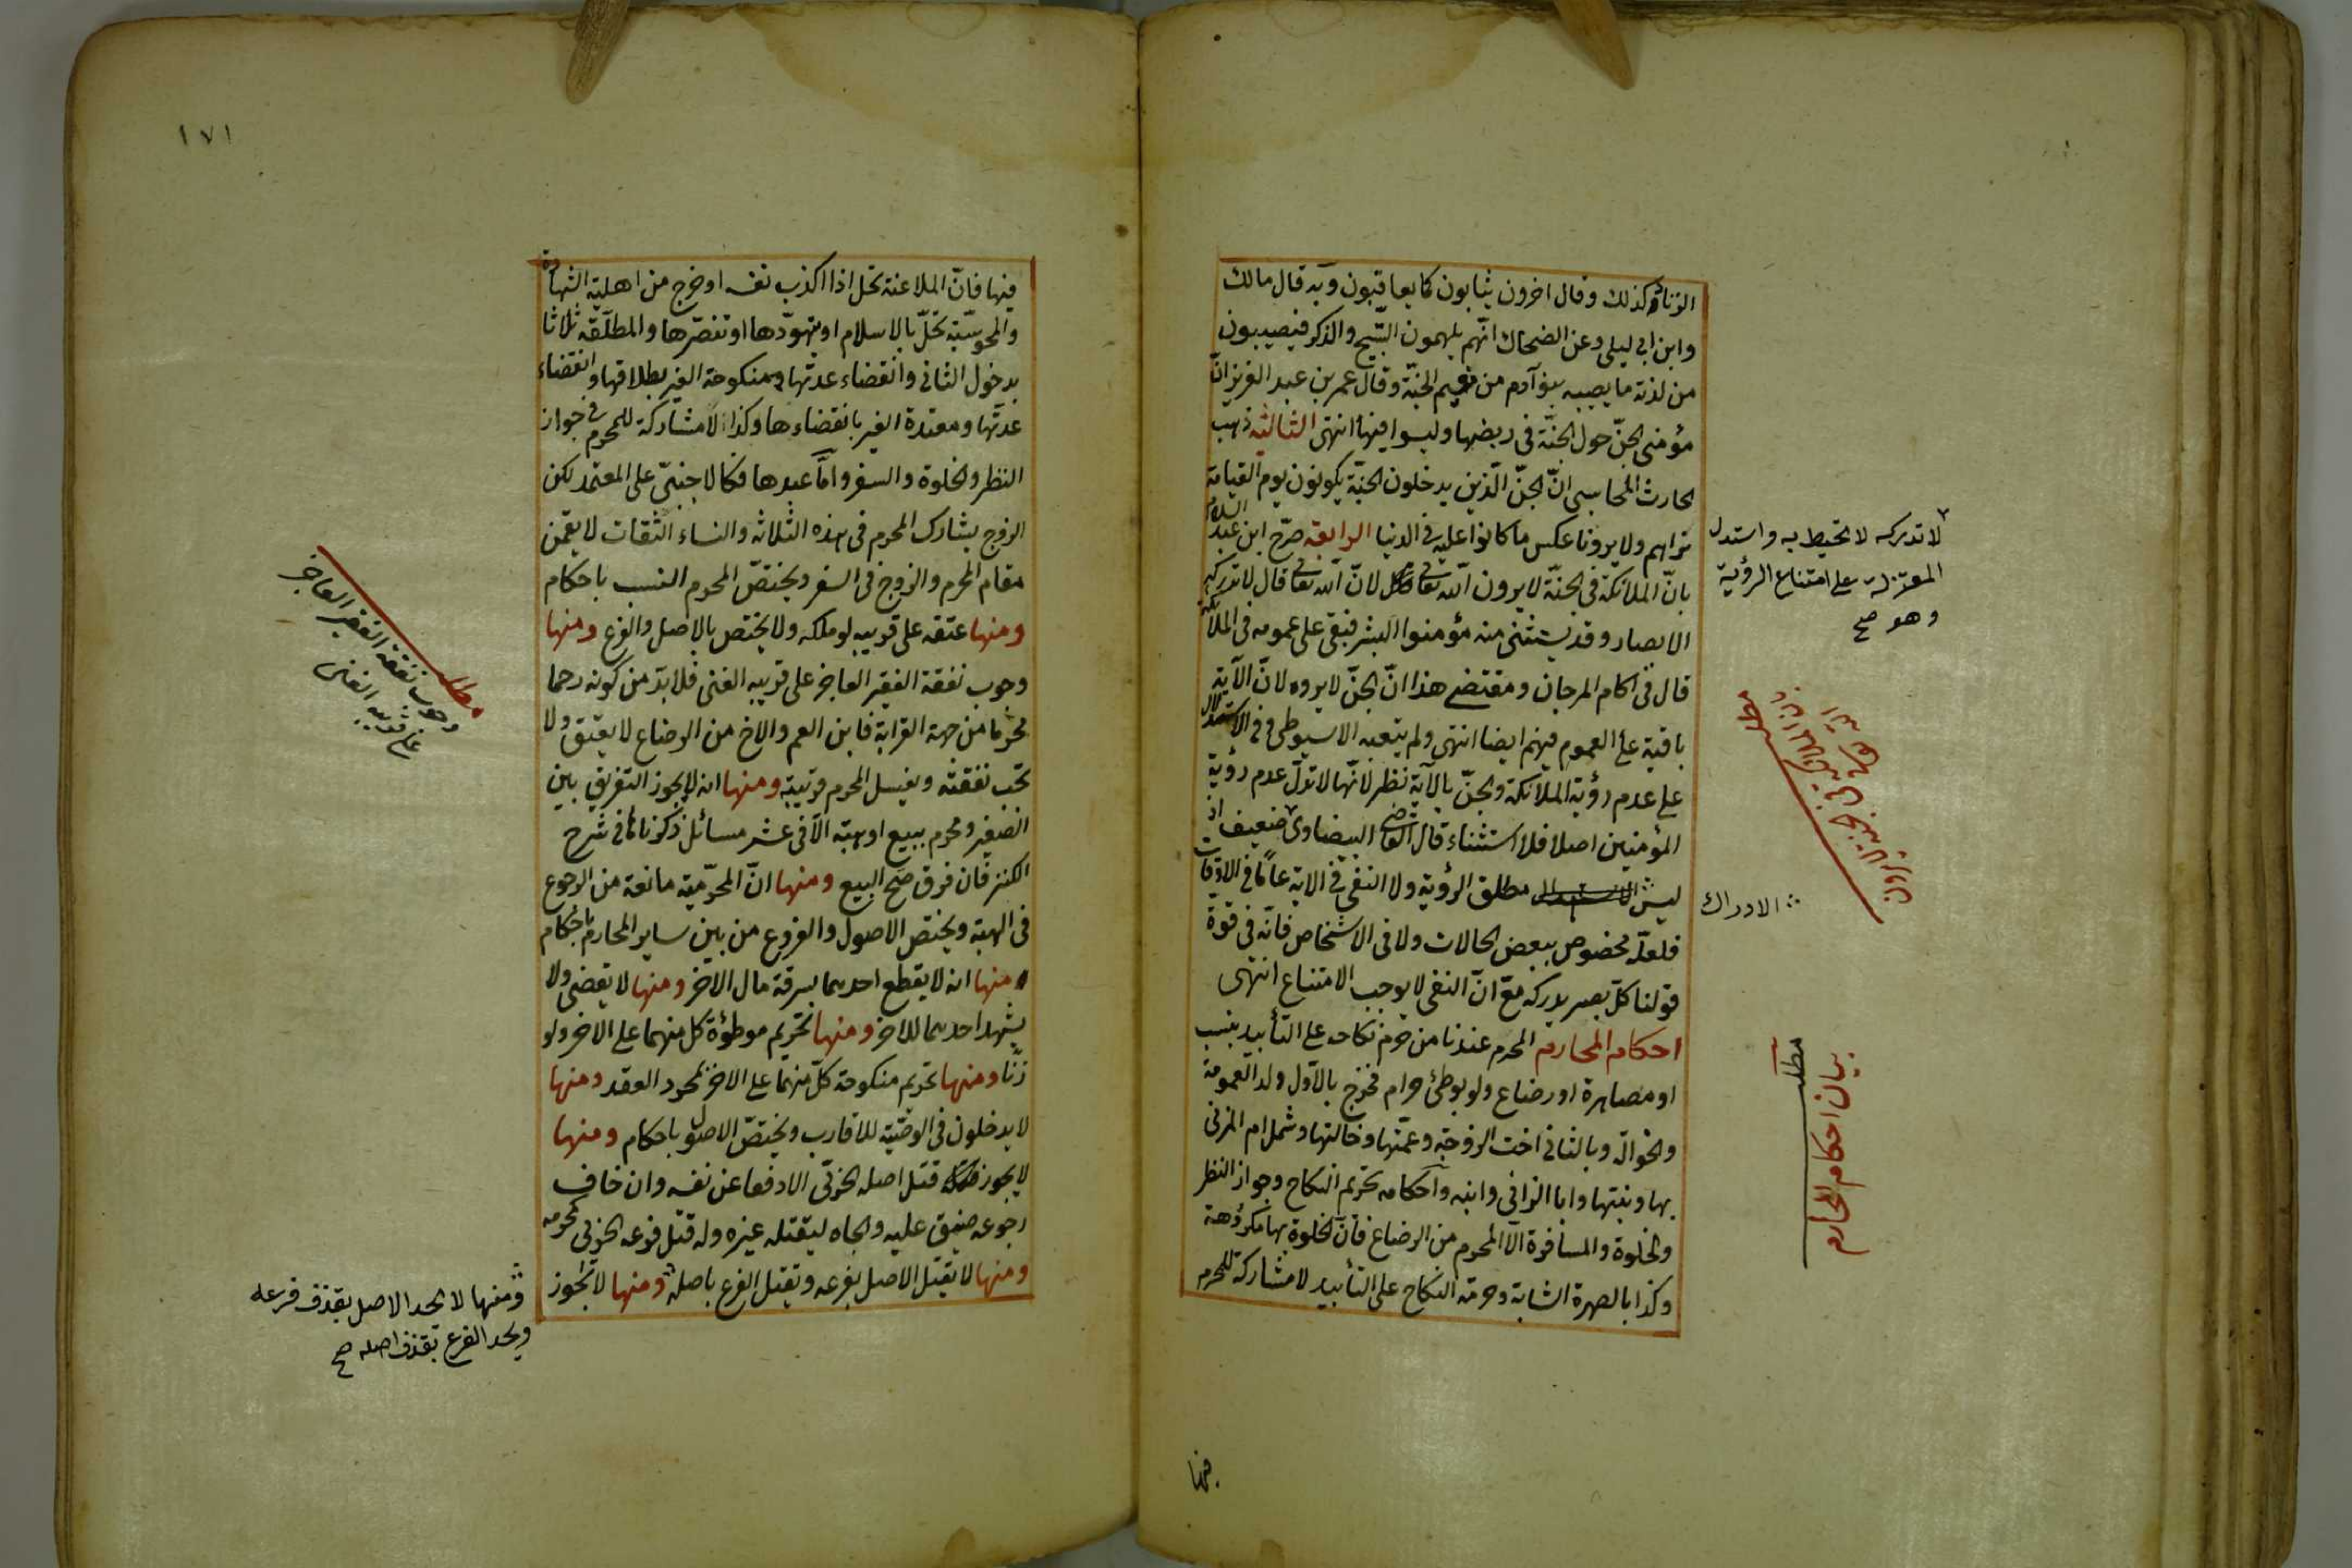 الزنا كذلك وقال اخرون يثابون كما يعاقبون وبه قال مالك
وابن ابي ليلى وعن الضحاك انهم يلهمون التسبيح والذكر فيصيبون
من لذته ما يصيبه بنو آدم من نعيم الجنة وقال عمر بن عبد العزيز انّ
مؤمنى الجنّ حول الجنّة في ربضها وليسوا فيها انتهى الثالثة ذهب
الحارث المحاسبى انّ الجنّ الّذين يدخلون الجنّة يكونون يوم القيامة
نراهم ولا يروننا عكس ما كانوا عليه في الدنيا الرابعة صرّح ابن عبد السلام
بانّ الملائكة في الجنّة لا يرون اللّه تعالى لانّ اللّه تعالى قال لا تدركه
الابصار وقد يستثنى منه مؤمنوا البشر فبقى على عمومه في الملائكة
قال في آكام المرجان ومقتضى هذا انّ الجنّ لا يروه لانّ الآية
باقية على العموم فيهم ايضا انتهى ولم يتعقبه الاسيوطى وفي الاستدلال
على عدم رؤية الملائكة والجنّ بالآية نظر لانّها لا تدلّ على عدم رؤية
المؤمنين اصلا فلا استثناء قال القاضى البيضاوى ضعيف اذ
ليس مطلق الرؤية ولا النفى في الاية عامّا في الاوقات
فلعلّه مخصوص ببعض الحالات ولا في الاشخاص فانّه في قوّة
قولنا كلّ بصر يدركه مع انّ النفى لا يوجب الامتناع انتهى
احكام المحارم المحرم عندنا من حرم نكاحه على التأبيد بنسب
او مصاهرة او رضاع ولو بوطئ حرام فخرج بالاّول ولد العمومة
والخوالة وبالثانى اخت الزوجة وعمّتها وخالتها وشمل ام المزنى
بها وبنتها وابا الزانى وابنه واحكامه تحريم النكاح وجواز النظر
والخلوة والمسافرة الاّ المحرم من الرضاع فانّ الخلوة بها مكروهة
وكذا بالصهرة الشابة وحرمة النكاح على التأبيد لا مشاركة للمحرم
لا تدركه لا تحيط به واستدل
المعتزلة على امتناع الرؤية
وهو صح
مطلب
الادراك
مطلب
بيان احكام المحارم
فيها
١٧١
فيها فانّ الملاعنة تحل اذا اكذب نفسه او خرج من اهلية الشهادة
والمجوسيّة تحلّ بالاسلام او بتهوّدها او تنصّرها والمطلّقة ثلاثا
بدخول الثانى وانقضاء عدتها ومنكوحة الغير بطلاقها وانقضاء
عدتها ومعتدة الغير بانقضاءها وكذا لا مشاركة للمحرم في جواز
النظر والخلوة والسفر وامّا عبدها فكالاجنبىّ على المعتمد لكن
الزوج يشارك المحرم في هذه الثلاثة والنساء الثقات لا يقمن
مقام المحرم والزوج في السفر ويختصّ المحرم النسب باحكام
ومنها عتقه على قريبه لو ملكه ولا يختص بالاصل والفرع ومنها
وجوب نفقة الفقير العاجز على قريبه الغنى فلا بدّ من كونه رحما
محرما من جهة القرابة فابن العم والاخ من الرضاع لا يعتق ولا
تجب نفقته ويغسل المحرم قريبه ومنها انه لا يجوز التفريق بين
الصغير ومحرم ببيع او هبة الاّ في عشر مسائل ذكرناها في شرح
الكنز فان فرق صحّ البيع ومنها انّ المحرّمية مانعة من الرجوع
في الهبة ويختص الاصول والفروع من بين ساير المحارم باحكام
منها انه لا يقطع احدهما بسرقة مال الاخر ومنها لا يقضى ولا
يشهد احدهما للاخر ومنها تحريم موطؤة كل منهما على الاخر ولو
زنًا ومنها تحريم منكوحة كلّ منهما على الاخر بمجرد العقد ومنها
لا يدخلون في الوصيّة للاقارب ويختصّ الاصول باحكام ومنها
لا يجوز قتل اصله الحربى الا دفعا عن نفسه وان خاف
رجوعه ضيق عليه والجاه ليقتله غيره وله قتل فرعه الحربى كمحرمه
ومنها لا يقتل الاصل بفرعه ويقتل الفرع باصله ومنها لا تجوز
مطلب
وجوب نفقة الفقير العاجز
على قريبه الغنى
ومنها لا يحد الاصل بقذف فرعه
ويحد الفرع بقذف اصله صح